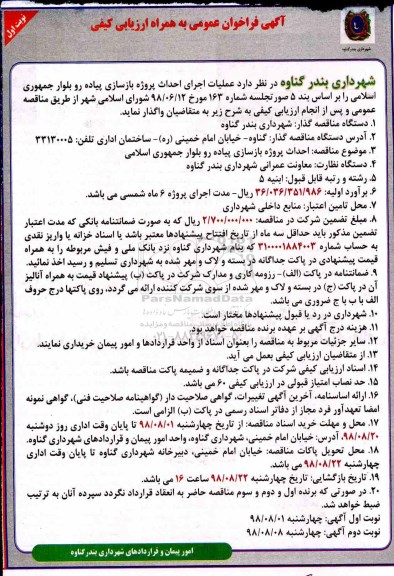 آگهی فراخوان عمومی به همراه ارزیابی کیفی
نوبت اول
شهرداری بندر گناوه
شهرداری بندر گناوه در نظر دارد عملیات اجرای احداث پروژه بازسازی پیاده رو بلوار جمهوری
اسلامی را بر اساس بند ۵ صورتجلسه شماره ۱۶۳ مورخ ۹۸/۰۶/۱۲ شورای اسلامی شهر از طریق مناقصه
عمومی و پس از انجام ارزیابی کیفی به شرح زیر به متقاضیان واگذار نماید.
۱. دستگاه مناقصه گذار: شهرداری بندر گناوه
۲. آدرس دستگاه مناقصه گذار: گناوه- خیابان امام خمینی (ره)- ساختمان اداری تلفن: ۳۳۱۳۰۰۰۵
۳. موضوع مناقصه: احداث پروژه بازسازی پیاده رو بلوار جمهوری اسلامی
۴. دستگاه نظارت: معاونت عمرانی شهرداری بندر گناوه
۵. رشته و رتبه قابل قبول: ابنیه ۵
۶. برآورد اولیه: ۳۶/۰۳۶/۳۵۱/۹۸۶ ریال- مدت اجرای پروژه ۶ ماه شمسی می باشد.
۷. محل تامین اعتبار: منابع داخلی شهرداری
۸. مبلغ تضمین شرکت در مناقصه: ۲/۷۰۰/۰۰۰/۰۰۰ ریال که به صورت ضمانتنامه بانکی که مدت اعتبار
تضمین مذکور باید حداقل سه ماه از تاریخ افتتاح پیشنهادها معتبر باشد یا اسناد خزانه یا واریز نقدی
به حساب شماره ۳۱۰۰۰۰۱۸۸۴۰۰۳ که بنام شهرداری گناوه نزد بانک ملی و فیش مربوطه را به همراه
قیمت پیشنهادی در پاکت جداگانه در بسته و لاک و مهر شده به شهرداری تسلیم و رسید اخذ نمائید.
۹. ضمانتنامه در پاکت (الف)- رزومه کاری و مدارک شرکت در پاکت (ب) پیشنهاد قیمت به همراه آنالیز
آن در پاکت (ج) در بسته و لاک و مهر شده از سوی شرکت کننده ارائه می گردد، روی پاکتها درج حروف
الف یا ب یا ج ضروری می باشد.
۱۰. شهرداری در رد یا قبول پیشنهادها مختار است.
۱۱. هزینه درج آگهی بر عهده برنده مناقصه خواهد بود.
۱۲. سایر جزئیات مربوط به مناقصه را بعنوان اسناد از واحد قراردادها و امور پیمان خریداری نمایند.
۱۳. از متقاضیان ارزیابی کیفی بعمل می آید.
۱۴. اسناد ارزیابی کیفی شرکت در پاکت جداگانه و ضمیمه پاکت مناقصه باشد.
۱۵. حد نصاب امتیاز قبولی در ارزیابی کیفی ۶۰ می باشد.
۱۶. ارائه اساسنامه، آخرین آگهی تغییرات، گواهی صلاحیت دار (گواهینامه صلاحیت فنی)، گواهی نمونه
امضا تعهدآور فرد مجاز از دفاتر اسناد رسمی در پاکت (ب) الزامی است.
۱۷. محل و مهلت خرید اسناد مناقصه: از تاریخ چهارشنبه ۹۸/۰۸/۰۱ تا پایان وقت اداری روز دوشنبه
۹۸/۰۸/۲۰، آدرس: خیابان امام خمینی، شهرداری گناوه، واحد امور پیمان و قراردادهای شهرداری گناوه.
۱۸. محل تحویل پاکات مناقصه: خیابان امام خمینی، دبیرخانه شهرداری گناوه تا پایان وقت اداری
چهارشنبه ۹۸/۰۸/۲۲ می باشد.
۱۹. تاریخ بازگشایی: تاریخ چهارشنبه ۹۸/۰۸/۲۲ ساعت ۱۶ می باشد.
۲۰. در صورتی که برنده اول و دوم و سوم مناقصه حاضر به انعقاد قرارداد نگردد سپرده آنان به ترتیب
ضبط خواهد شد.
نوبت اول آگهی: چهارشنبه ۹۸/۰۸/۰۱
نوبت دوم آگهی: چهارشنبه ۹۸/۰۸/۰۸
امور پیمان و قراردادهای شهرداری بندرگناوه
ParsNamadData